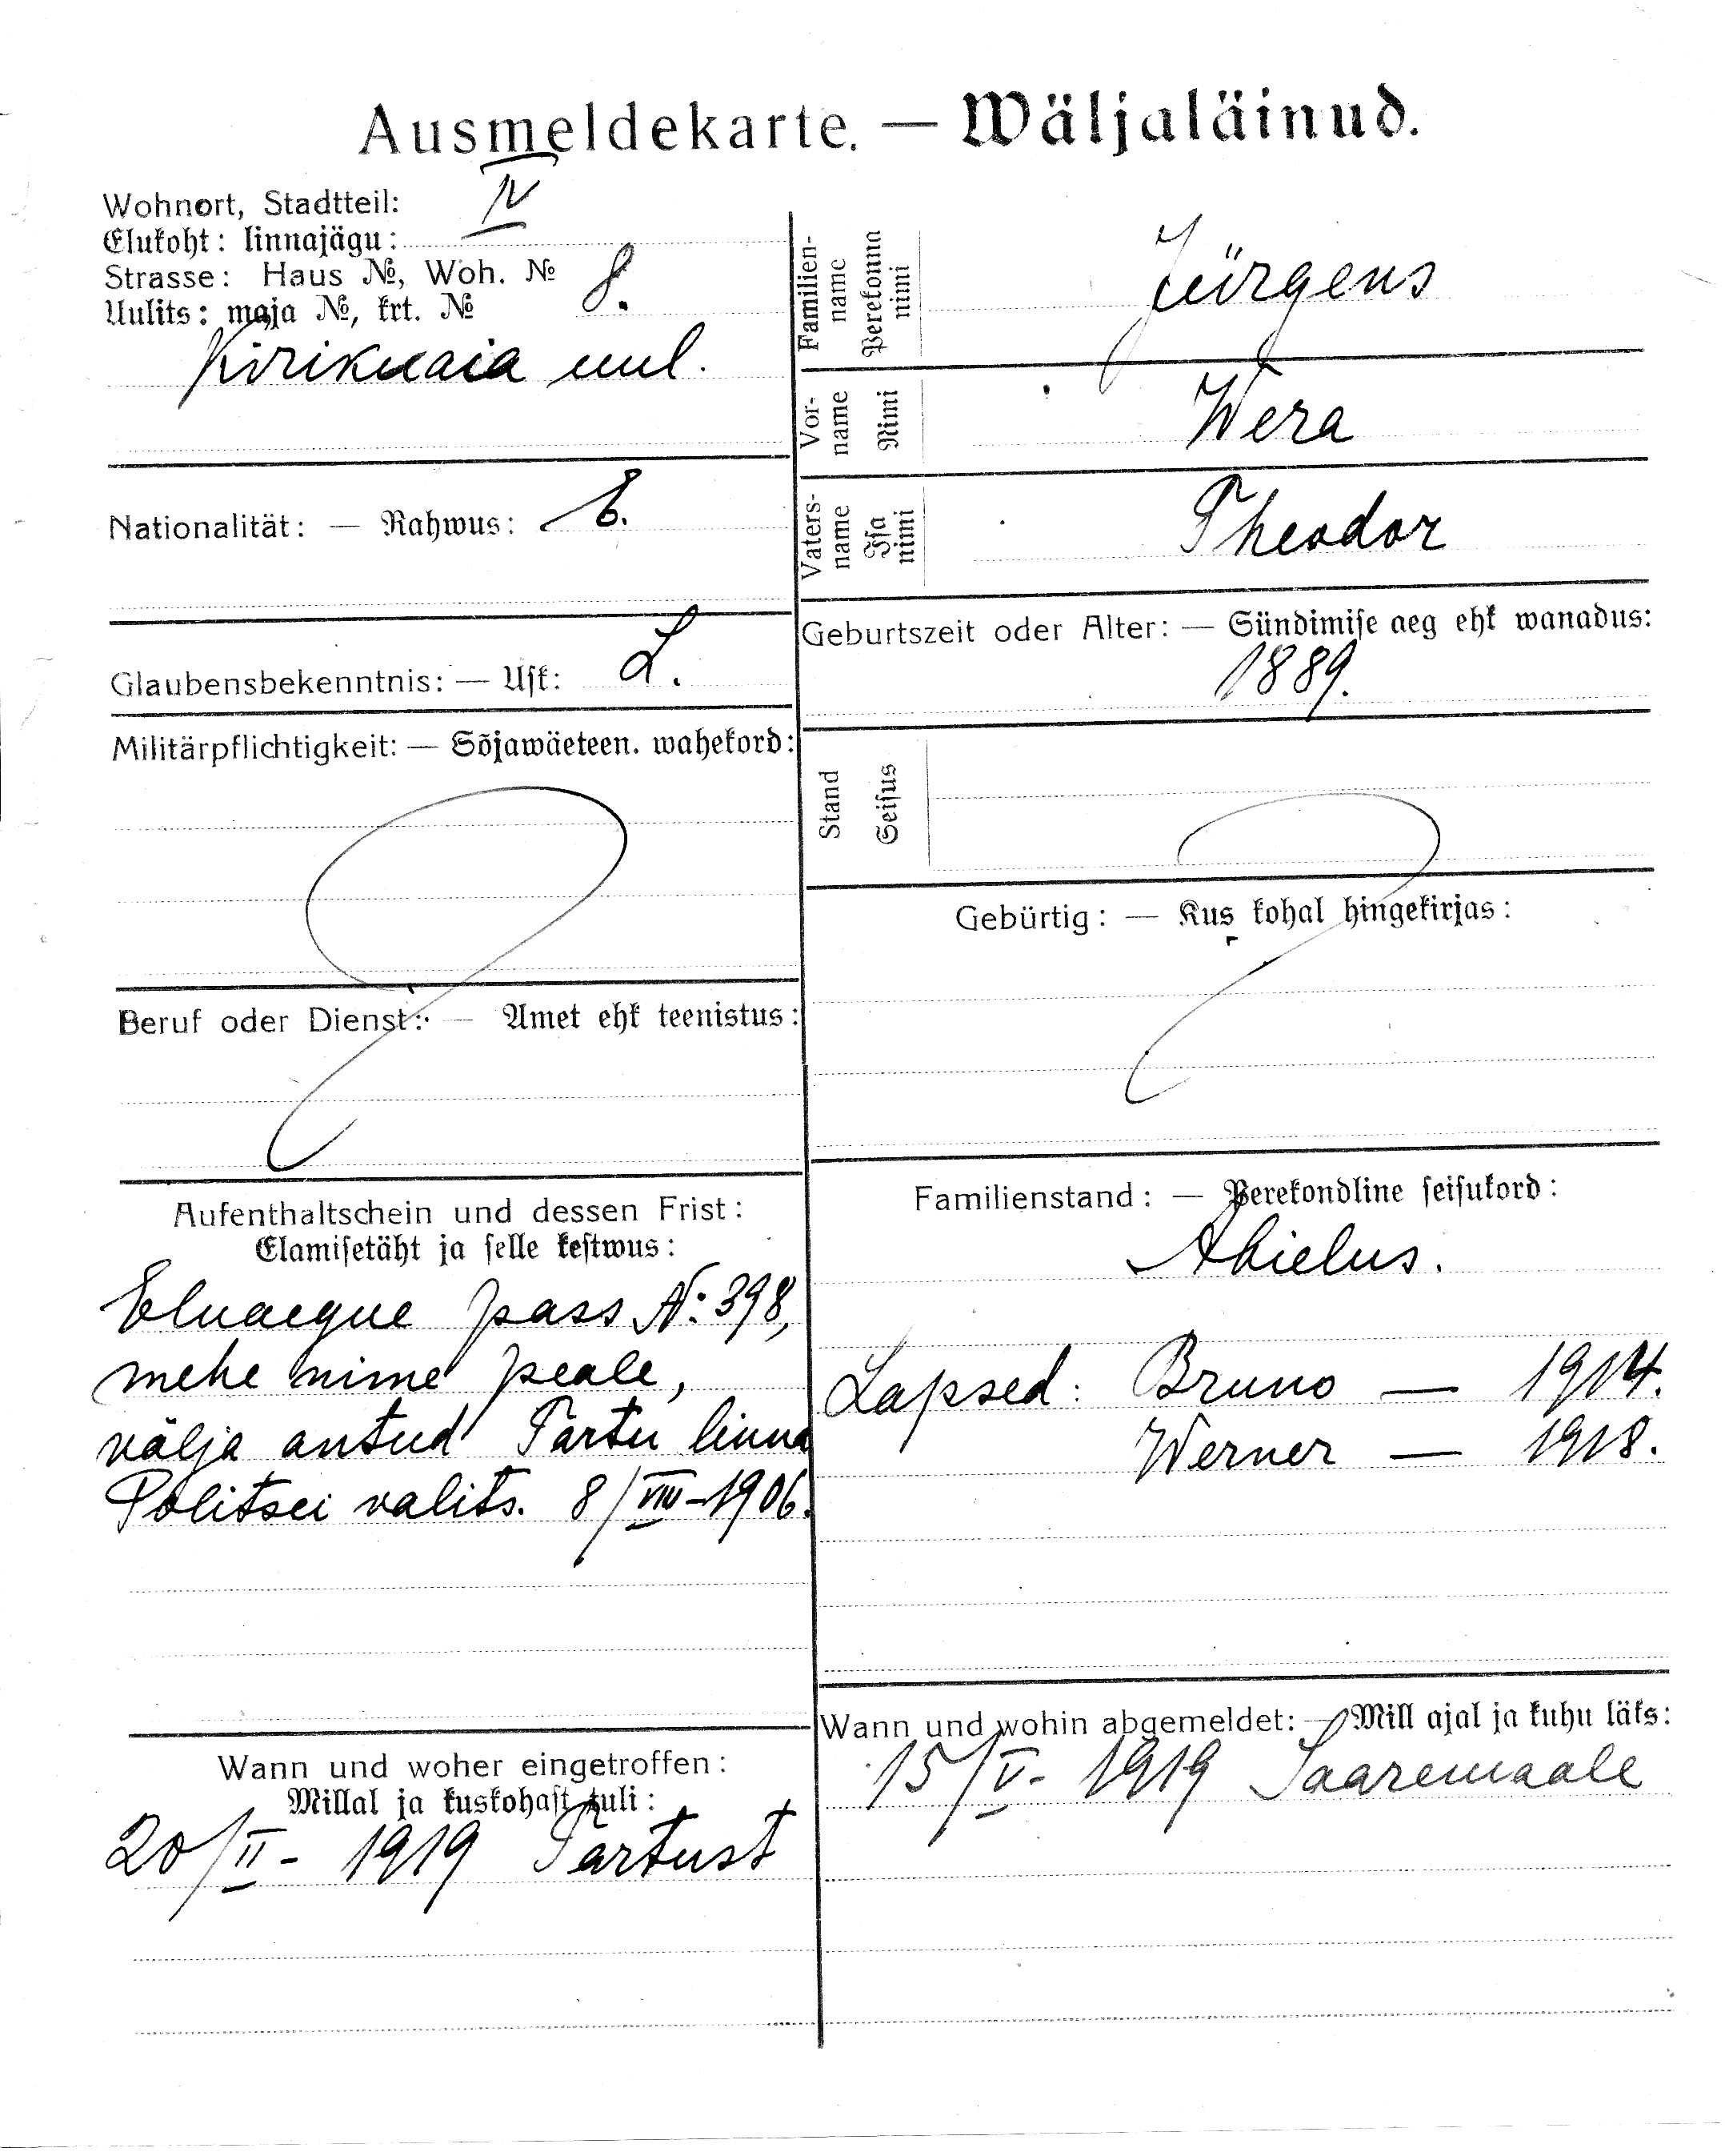 Ausmeldekarte. — Wäljaläinud.
Wohnort, Stadtteil: IV
Elukoht: linnajägu:
Strasse: Haus №, Woh. № 8.
Uulits: maja №, krt. №
Kirikuaia uul.
Nationalität: — Rahwus: E.
Glaubensbekenntnis: — Usk: L.
Militärpflichtigkeit: — Sõjawäeteen. wahekord:
Beruf oder Dienst: — Amet ehk teenistus:
Aufenthaltschein und dessen Frist:
Elamisetäht ja selle kestwus:
Eluaegne pass N: 398,
mehe nime peale,
välja antud Tartu linna
Politsei valits. 8/VIII-1906.
Wann und woher eingetroffen:
Millal ja kuskohast tuli:
20/II - 1919 Tartust
Familien-
name
Perekonna
nimi
Jürgens
Vor-
name
Nimi
Wera
Vaters-
name
Isa
nimi
Theodor
Geburtszeit oder Alter: — Sündimise aeg ehk wanadus:
1889.
Stand
Seisus
Gebürtig: — Kus kohal hingekirjas:
Familienstand: — Perekondline seisukord:
Abielus.
Lapsed: Bruno — 1914.
Werner — 1918.
Wann und wohin abgemeldet: — Mill ajal ja kuhu läks:
15/V - 1919 Saaremaale